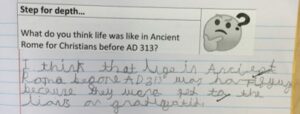 Step for depth...
What do you think life was like in Ancient
Rome for Christians before AD 313?
I think that life in Ancient
Rome before AD 313 was
because they were fed to the
lions or